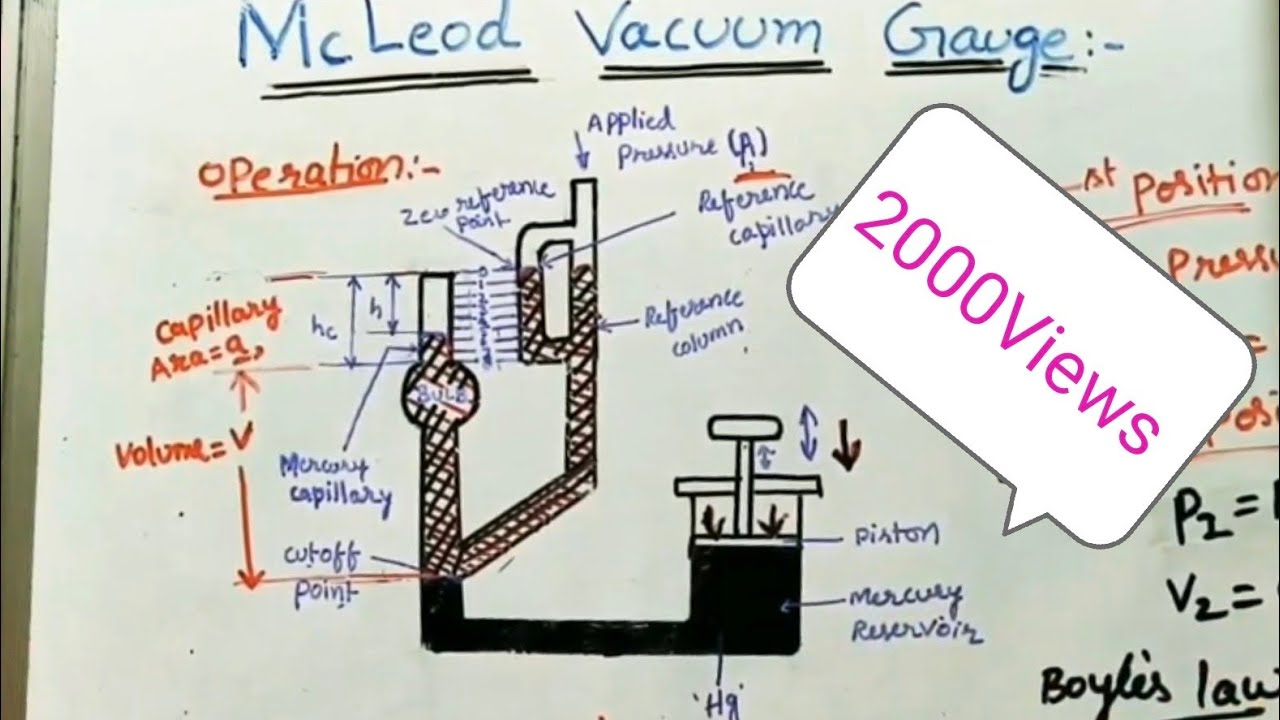 McLeod Vacuum Gauge:-
Operation:-
Applied
Pressure (P1)
Zero reference
Point
Reference
capillary
1st Position
Pressu
2000Views
0
h
hc
Capillary
Ara = a,
Reference
column
BULB
Volume = V
Mercury
capillary
cutoff
point
Piston
Mercury
Reservoir
'Hg'
P2 =
V2 =
Boyle's law